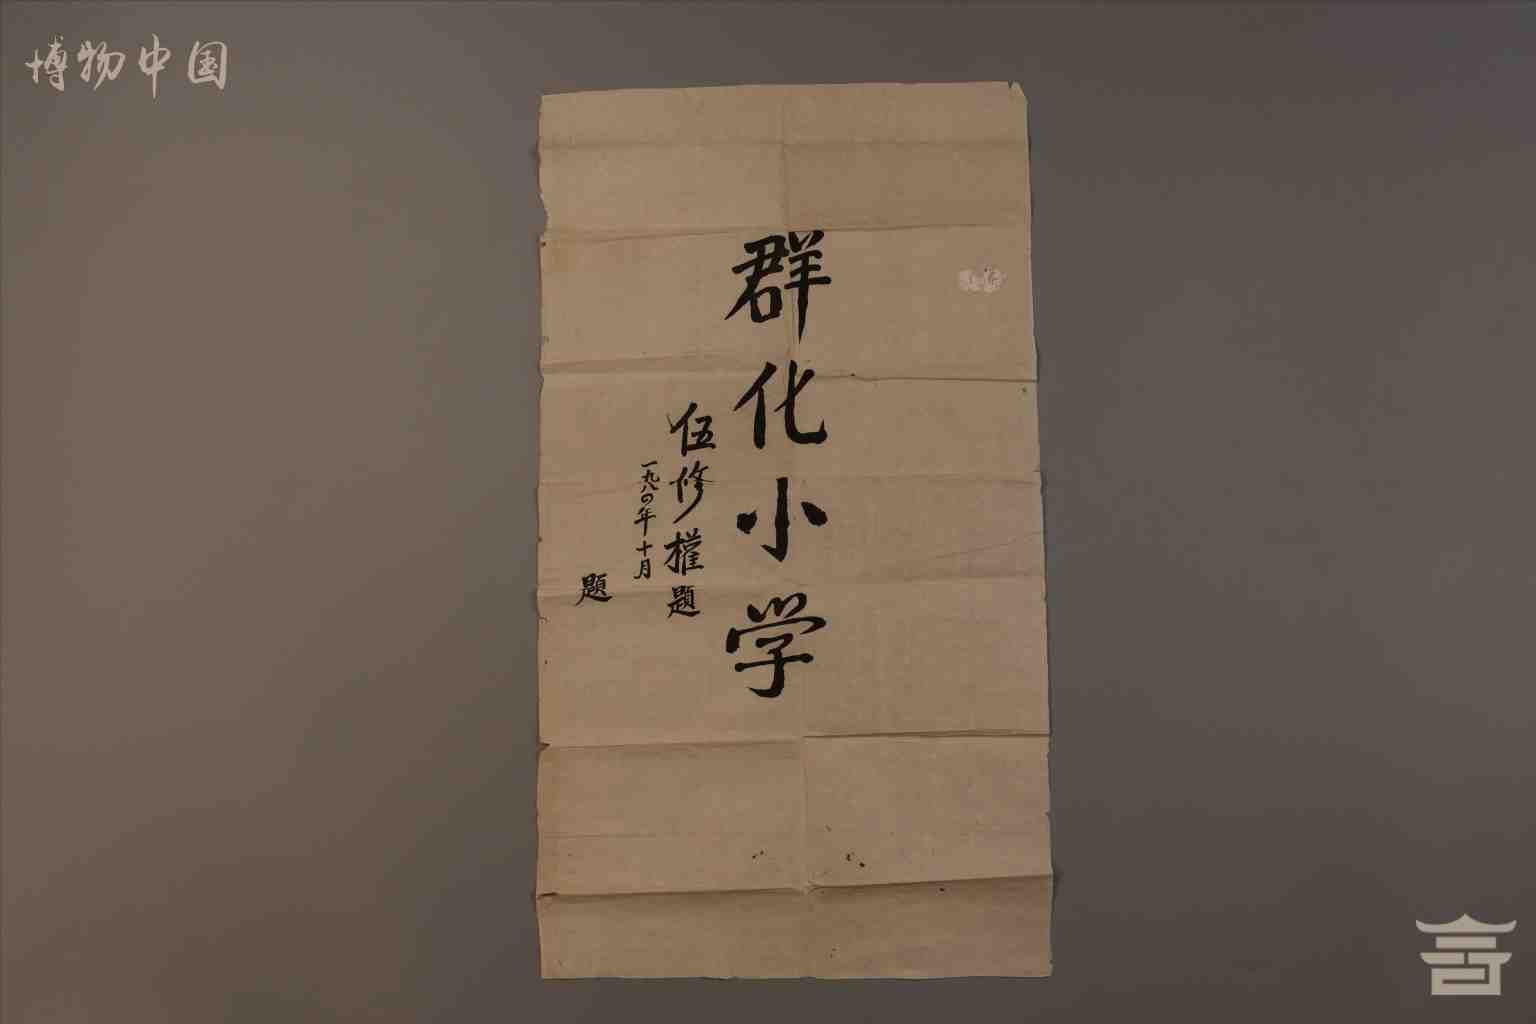 博物中国
群化小学
伍修權題
一九八〇年十月
題